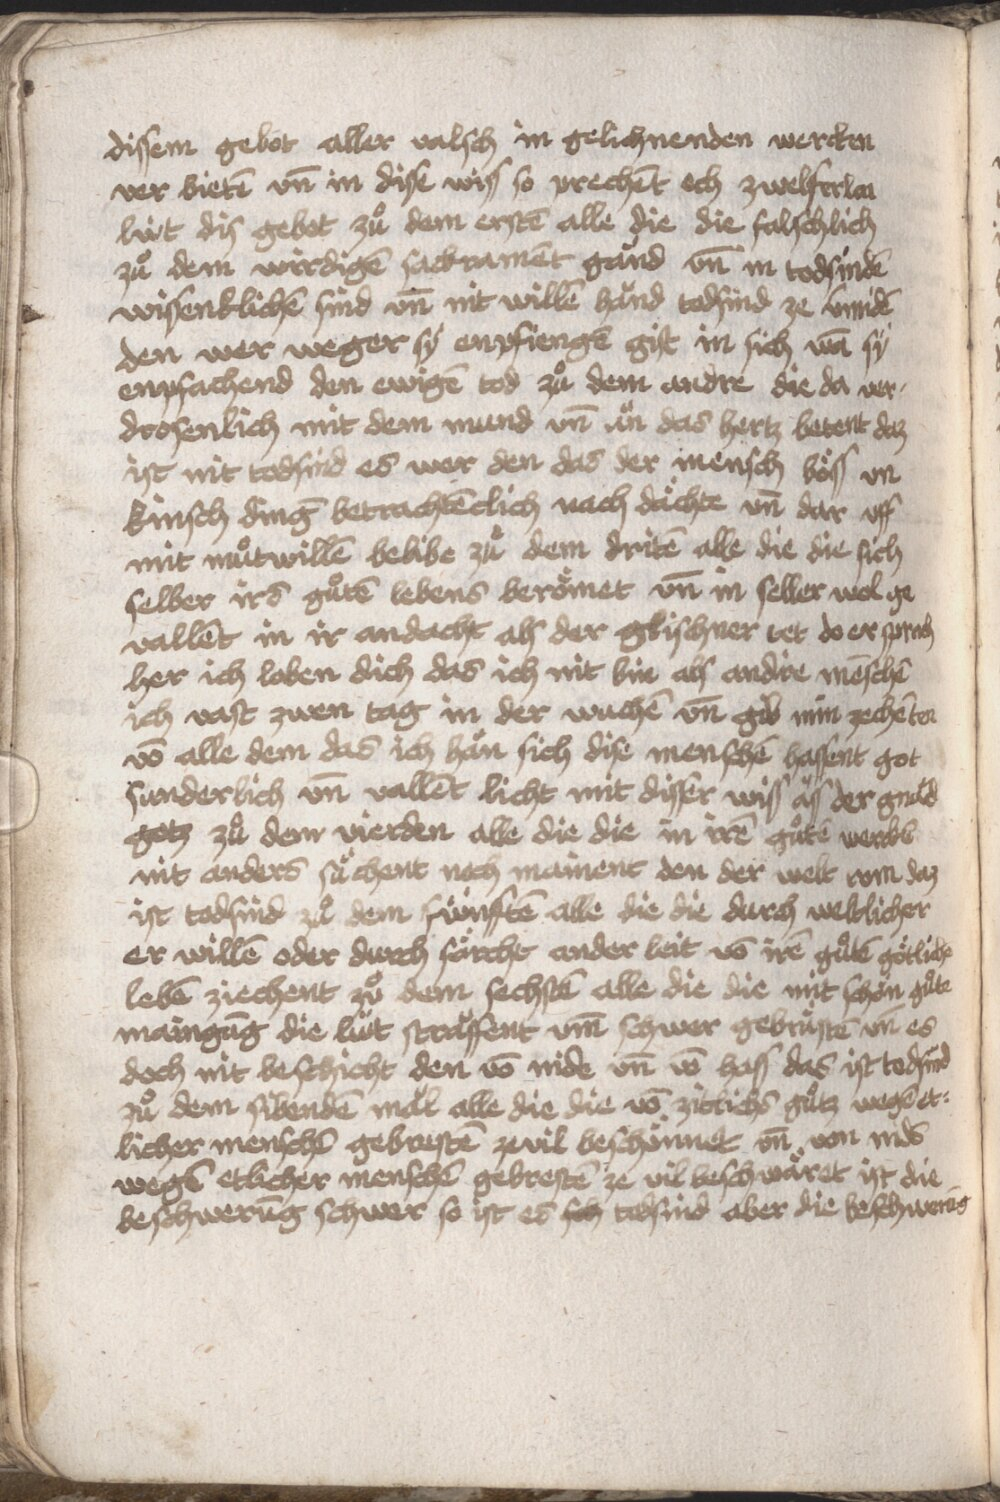 dissem gebot aller valsch in gelichnenden wercken
ver bietē vn̄ in disse wiss so prechēt och zwelferlai
lüt dis gebot zů dem erstē alle die die falschlich
zů dem wirdigē sackramēt gand vn̄ in todsündē
wissenklichē sind vn̄ nit willē hand todsünd ze midē
den wer weger sÿ enpfiengē gift in sich wā sÿ
enpfachend den ewigē tod zů dem andre die da ver-
drosenlich mit dem mund vn̄ an das hertz betent daz
ist nit todsünd es wer den das der mensch böss vn
kinsch dinḡ betrachtēclich nach dächte vn̄ dar uff
mit můtwillē belibe zů dem dritē alle die die sich
selber irs gůtē lebens berömet vn̄ in seller wol ge
vallēt in ir andacht als der glischner tet do er sprach
her ich loben dich das ich nit bin als andre mēschē
ich vast zwen tag in der wuchē vn̄ gib min zechēten
vō alle dem das ich hän sich dise menschē hassent got
sunderlich vn̄ vallēt licht mit disser wiss uss der guld
gotz zů dem vierden alle die die in irē gůtē werckē
nit anders sůchent noch mainent den der welt rom daz
ist todsünd zů dem fünftē alle die die durch weltlicher
er willē oder durch forcht ander leit vō irē gůtē götliche
lebē ziechent zů dem sechstē alle die die mit schön gůte
maingūg die lüt strässent vm̄ schwer gebrästē vn̄ es
doch nit beschicht den vō nide vn̄ vō hass das ist todsünd
zů dem sibendē mäl alle die die vō zitlichs gůtz wegē et-
licher menschē gebrestē zevil beschönnet vn̄ von nids
wegē etlicher menschē gebrestē ze vil beschwäret ist die
beschwerūg schwer so ist es sch todsünd aber die beschwerūg